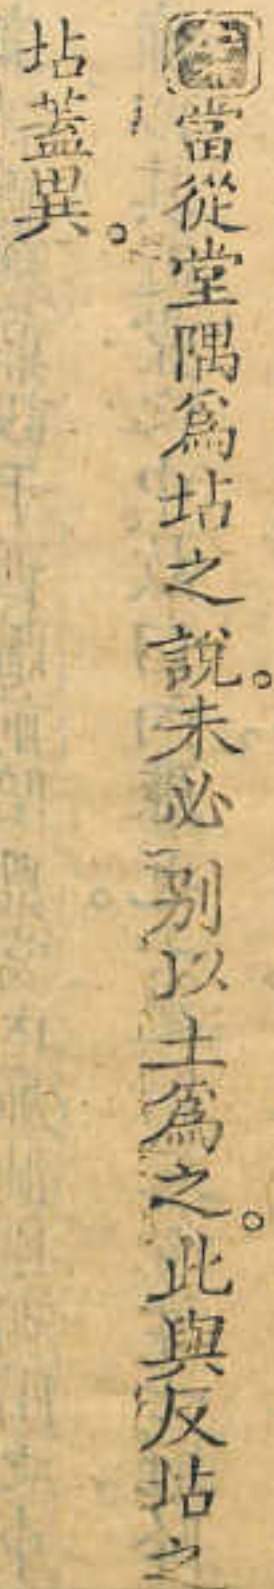 當從堂隅爲坫之說。未必別以土爲之。此與反坫之
坫蓋異。